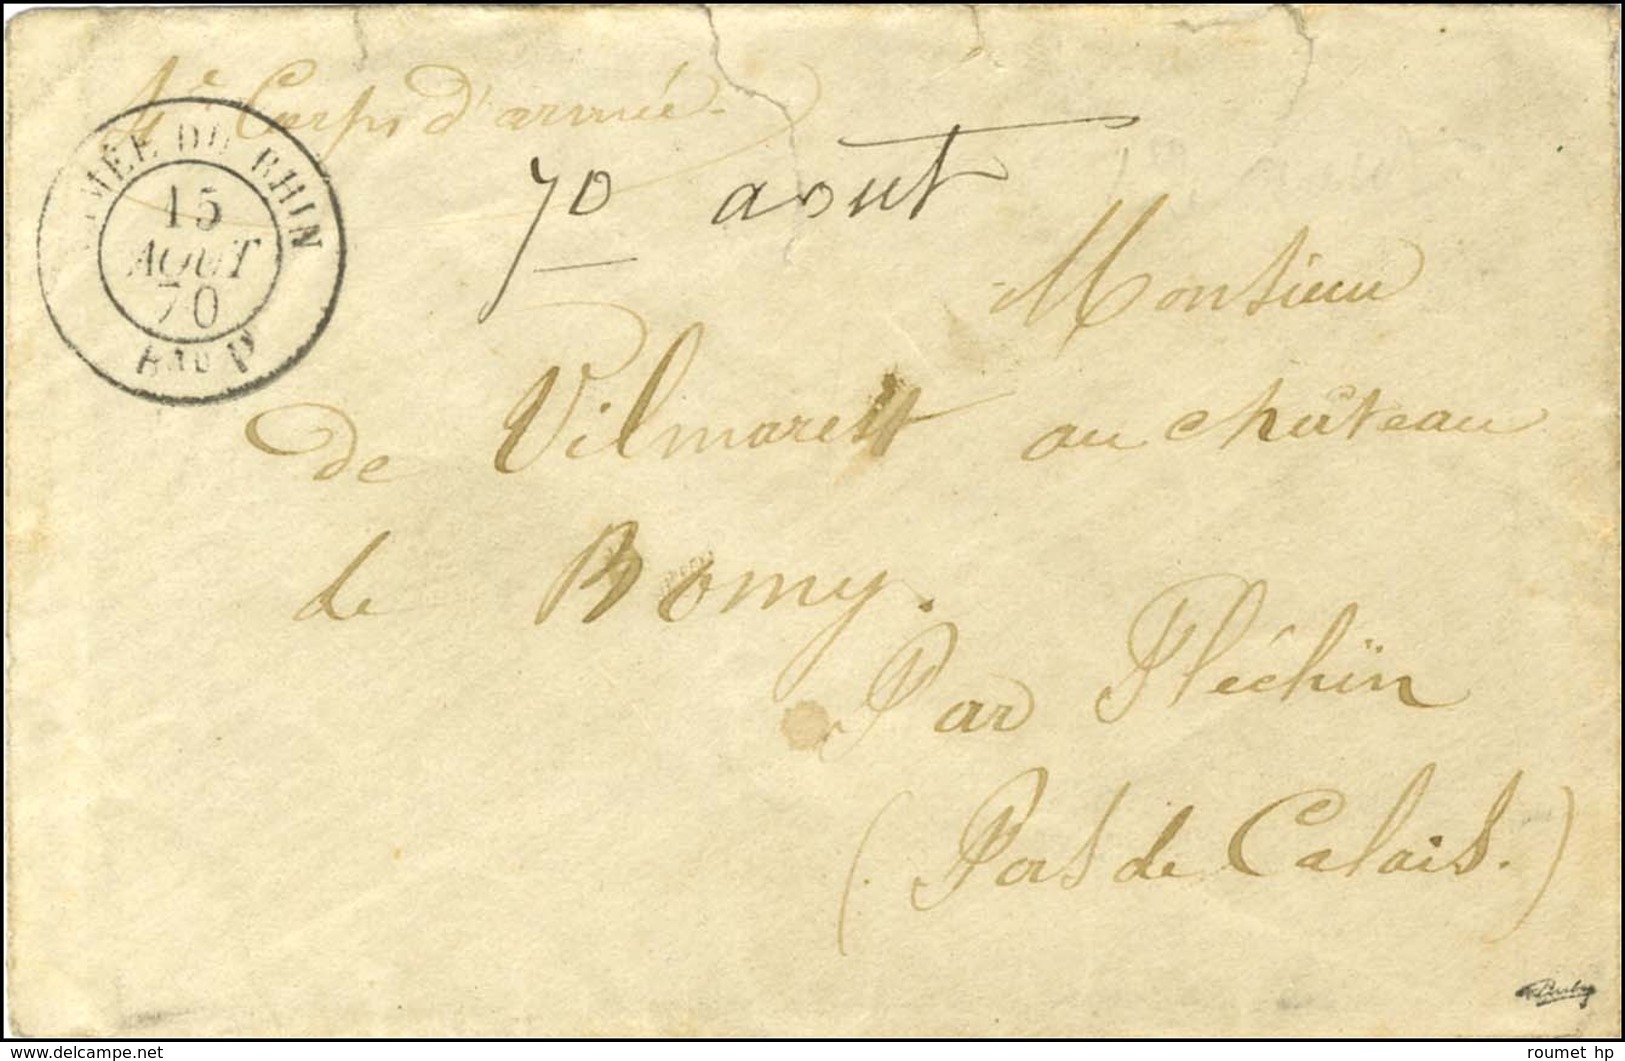 4e Corps d'armée
ARMÉE DU RHIN
15
AOUT
70
BAU D
70 août
Monsieur
de Vilmarest au château
de Bomy.
Par Fléchïn
(Pas de Calais.)
www.delcampe.net
roumet hp